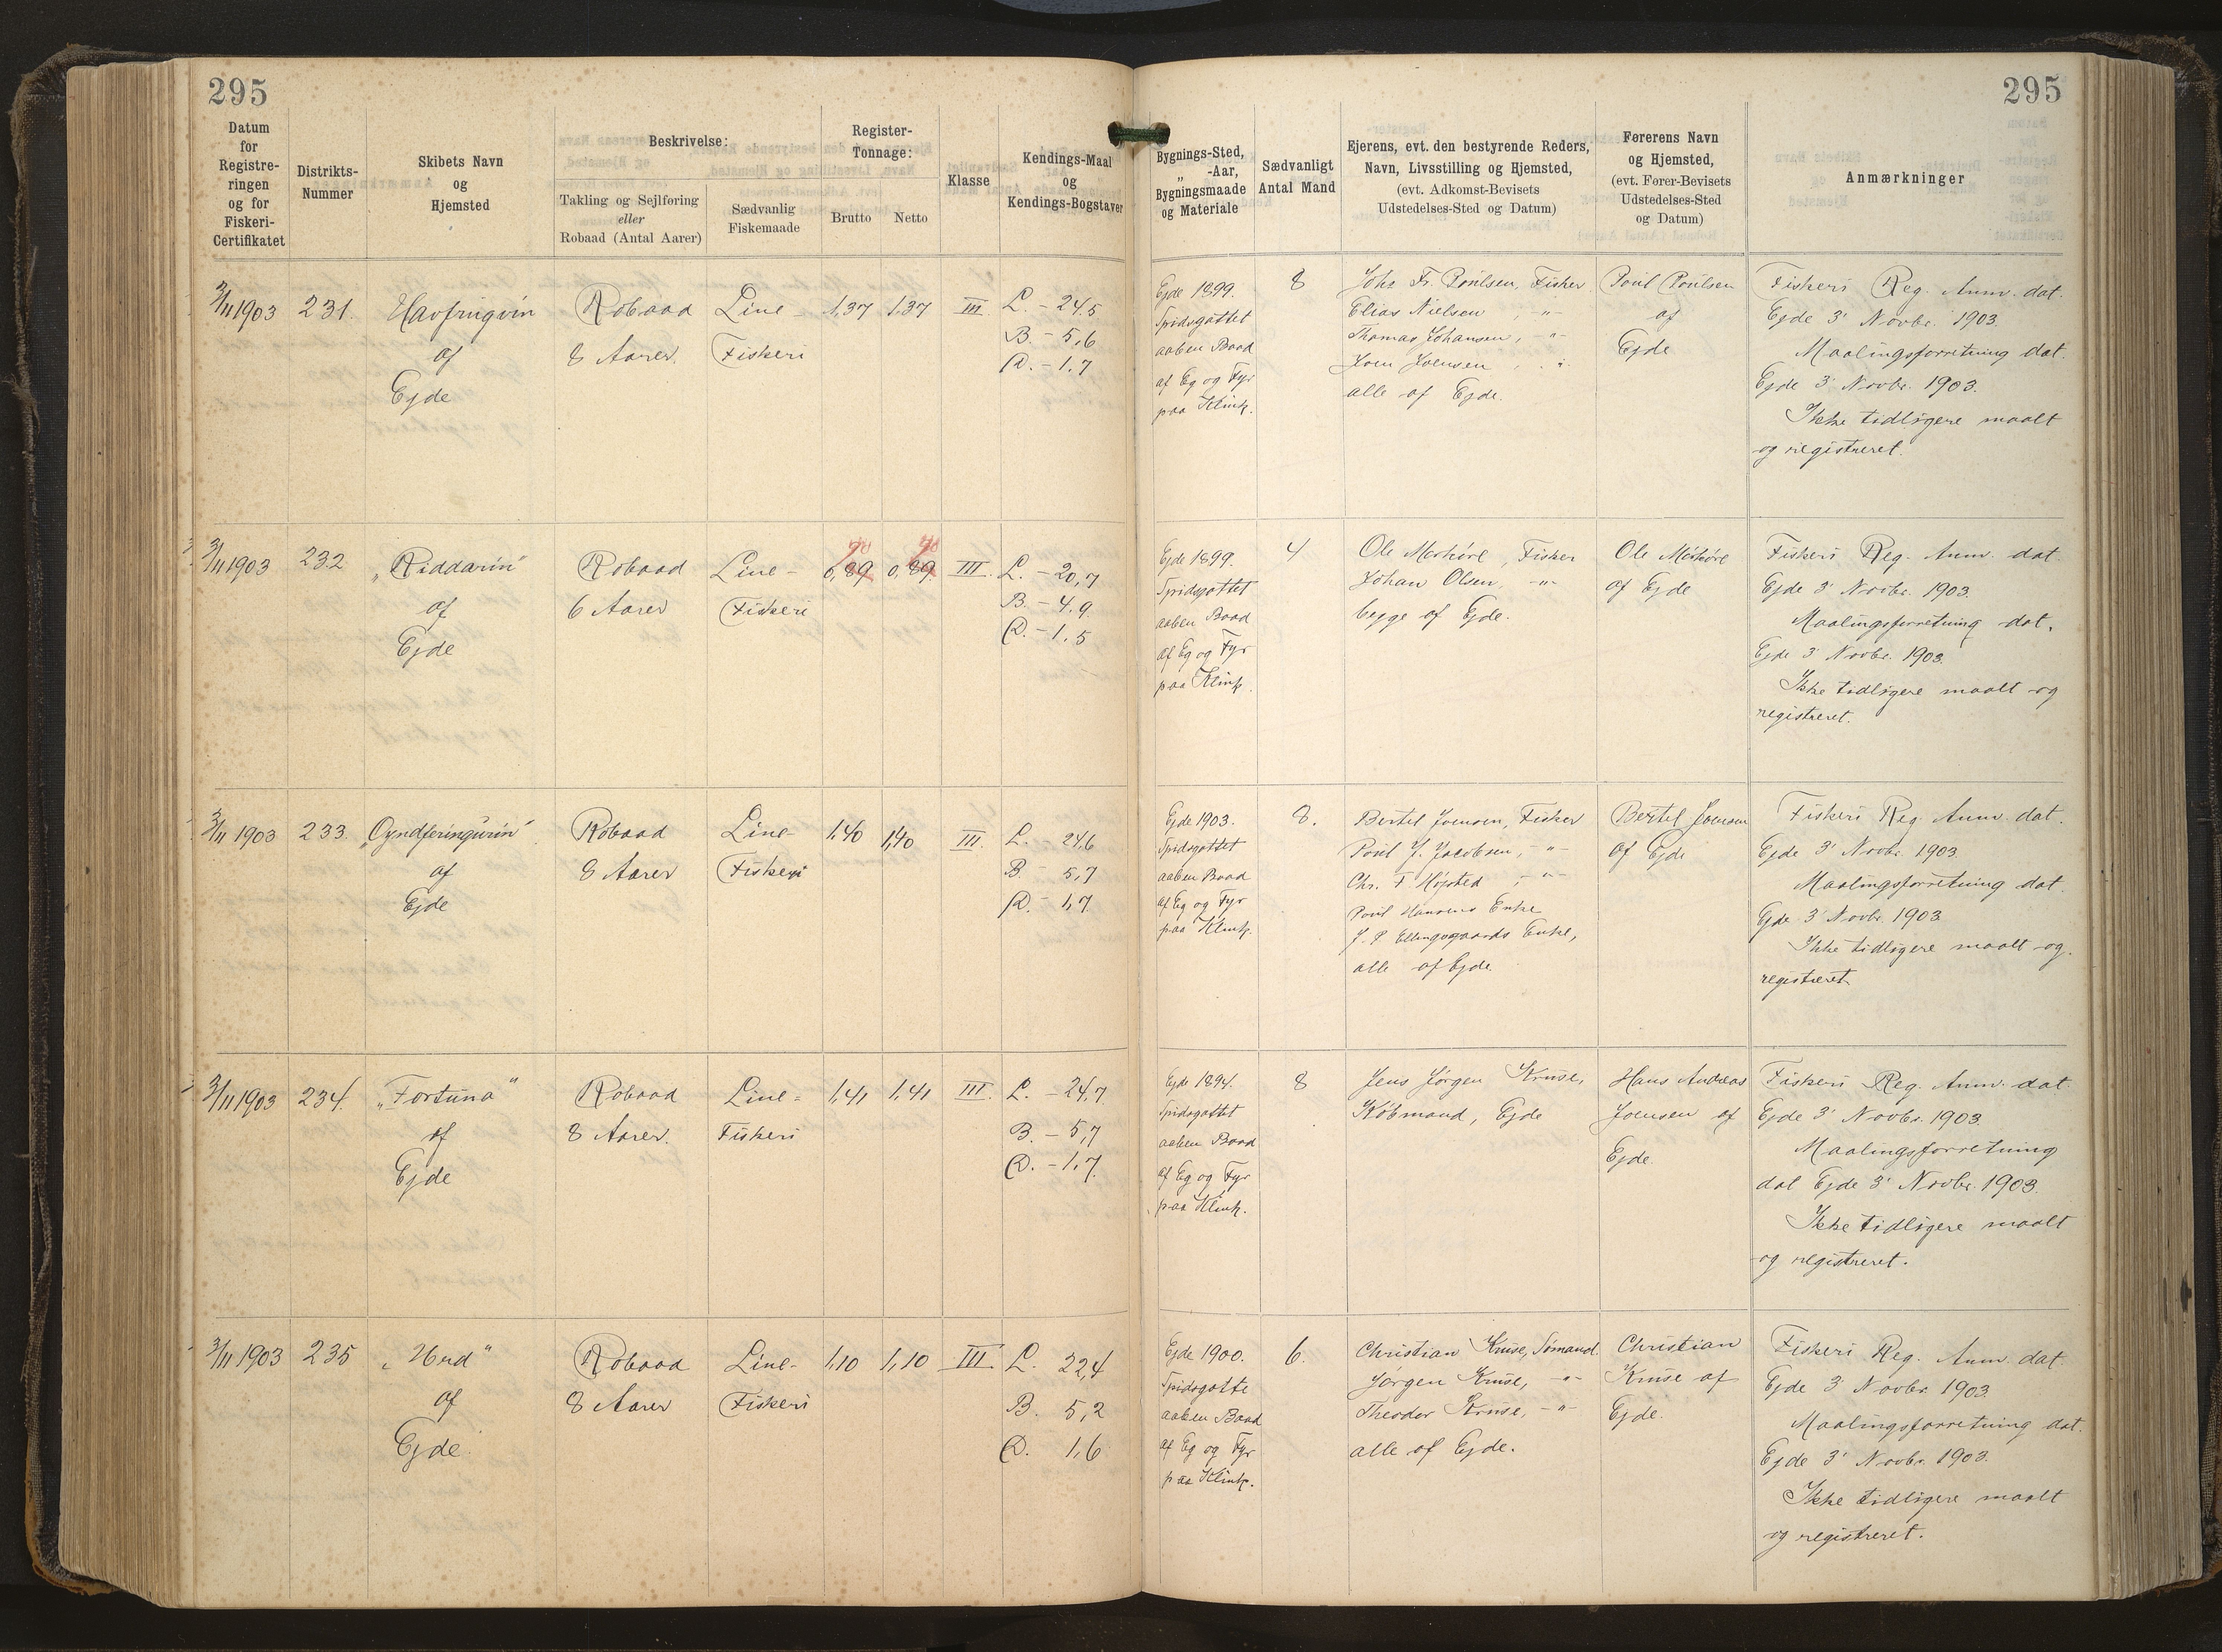 295
295
Datum
for
Registre-
ringen
og for
Fiskeri-
Certifikatet
Distrikts-
Nummer
Skibets Navn
og
Hjemsted
Beskrivelse:
Takling og Sejlføring
eller
Robaad (Antal Aarer)
Sædvanlig
Fiskemaade
Register-
Tonnage:
Brutto
Netto
Klasse
Kendings-Maal
og
Kendings-Bogstaver
Bygnings-Sted,
„ -Aar,
Bygningsmaade
og Materiale
Sædvanligt
Antal Mand
Ejerens, evt. den bestyrende Reders,
Navn, Livsstilling og Hjemsted,
(evt. Adkomst-Bevisets
Udstedelses-Sted og Datum)
Førerens Navn
og Hjemsted,
(evt. Fører-Bevisets
Udstedelses-Sted
og Datum)
Anmærkninger
3/11 1903
231.
Havfrugvin
af
Ejde
Robaad
8 Aarer
Line-
Fiskeri
1,37
1,37
III
L. - 24.5
B. - 5,6
D. - 1.7
Ejde 1899.
Spidsgattet
aaben Baad
af Eg og Fyr
paa Klink.
8
Johs Fr. Poulsen, Fisker
Elias Nielsen, -"-
Thomas Johansen, -"-
Joen Joensen
alle af Ejde.
Poul Poulsen
af
Ejde
Fiskeri Reg. Anm. dat.
Ejde 3' Novbr. 1903.
Maalingsforretning dat.
Ejde 3' Novbr. 1903.
Ikke tidligere maalt
og registreret.
3/11 1903
232
„Riddarin"
af
Ejde
Robaad
6 Aarer
Line-
Fiskeri
0,89
0,89
III.
L. - 20,7
B. - 4.9
D. - 1.5
Ejde 1899.
Spidsgattet
aaben Baad
af Eg og Fyr
paa Klink.
4
Ole Mørkøre, Fisker
Johan Olsen, -"-
begge af Ejde.
Ole Mørkøre
af Ejde
Fiskeri Reg. Anm. dat.
Ejde 3' Novbr. 1903.
Maalingsforretning dat.
Ejde 3' Novbr. 1903.
Ikke tidligere maalt og
registreret.
3/11 1903
233.
„Oyndferingurin"
af
Ejde
Robaad
8 Aarer
Line-
Fiskeri
1,40
1,40
III.
L. - 24,6
B. - 5,7
D. - 1,7
Ejde 1903.
Spidsgattet
aaben Baad
af Eg og Fyr
paa Klink.
8.
Bertel Joensen, Fisker
Poul J. Jacobsen, -"-
Chr. F Højsted, -"-
Poul Hansens Enke
J. P Ellingsgaards Enke,
alle af Ejde.
Bertel Joensen
af Ejde
Fiskeri Reg. Anm. dat.
Ejde 3' Novbr. 1903.
Maalingsforretning dat.
Ejde 3' Novbr. 1903
Ikke tidligere maalt og
registreret
3/11 1903
234.
„Fortuna"
af
Ejde
Robaad
8 Aarer.
Line-
Fiskeri
1,41
1,41
III.
L. - 24,7
B. - 5,7
D. - 1,7.
Ejde 1894.
Spidsgattet
aaben Baad
af Eg og Fyr
paa Klink.
8
Jens Jørgen Kruse,
Købmand, Ejde
Hans Andreas
Joensen af
Ejde.
Fiskeri Reg. Anm. dat.
Ejde 3' Novbr. 1903.
Maalingsforretning
dat Ejde 3' Novbr. 1903.
Ikke tidligere maalt
og registreret.
3/11 1903
235
„Urd"
af
Ejde
Robaad
8 Aarer
Line-
Fiskeri
1,10
1,10
III.
L. 22,4
B. 5,2
D. 1,6
Ejde 1900.
Spidsgatte
aaben Baad
af Eg og Fyr
paa Klink.
6.
Christian Kruse, Sømand.
Jørgen Kruse, -"-
Theodor Kruse, -"-
alle af Ejde.
Christian
Kruse af
Ejde.
Fiskeri Reg. Anm. dat.
Ejde 3' Novbr. 1903.
Maalingsforretning dat.
Ejde 3' Novbr. 1903.
Ikke tidligere maalt
og registreret.